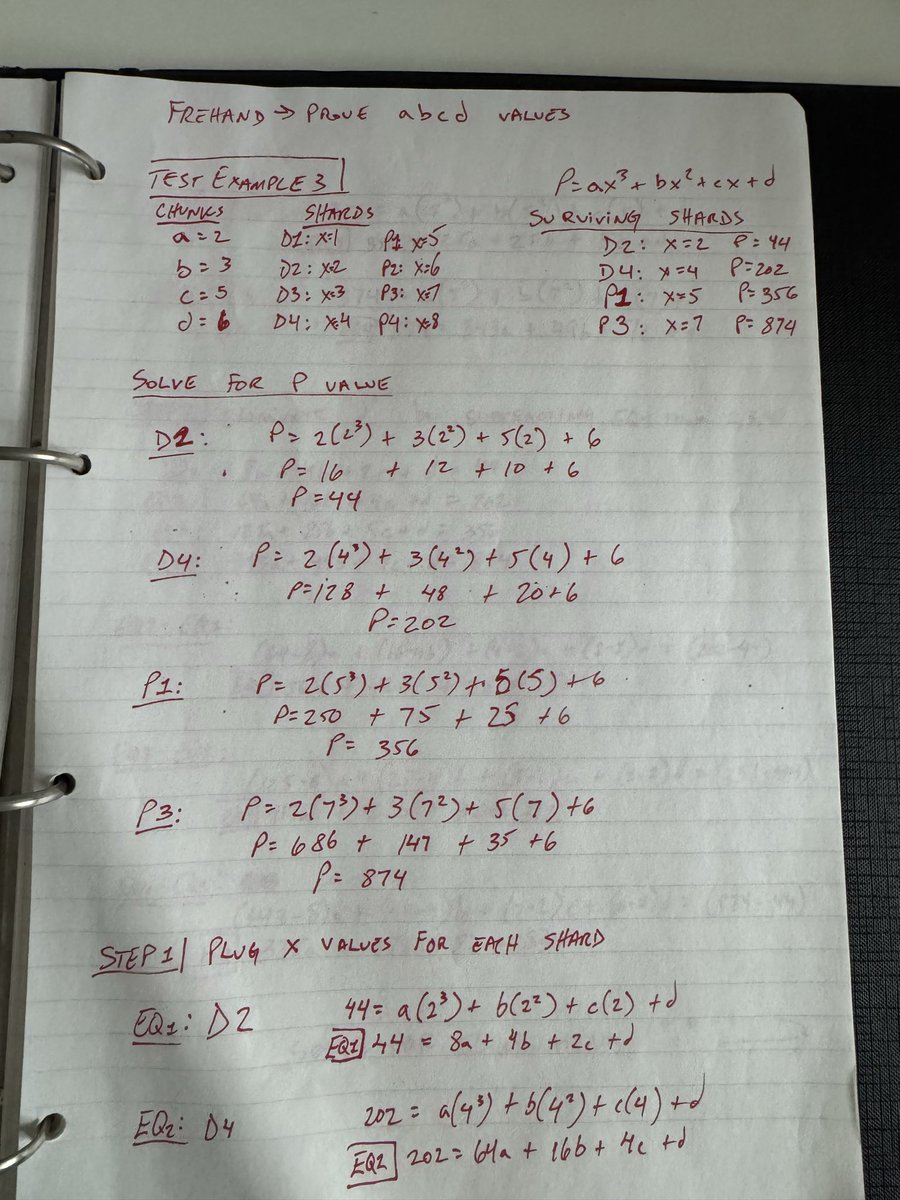 FREHAND → PROVE abcd VALUES
TEST EXAMPLE 3
P=ax³+bx²+cx+d
CHUNKS SHARDS SURVIVING SHARDS
a=2 D1: x=1 P1 x=5 D2: x=2 P=44
b=3 D2: x=2 P2: x=6 D4: x=4 P=202
c=5 D3: x=3 P3: x=7 P1: x=5 P=356
d=6 D4: x=4 P4: x=8 P3: x=7 P=874
SOLVE FOR P VALUE
D2: P=2(2³)+3(2²)+5(2)+6
P=16+12+10+6
P=44
D4: P=2(4³)+3(4²)+5(4)+6
P=128+48+20+6
P=202
P1: P=2(5³)+3(5²)+5(5)+6
P=250+75+25+6
P=356
P3: P=2(7³)+3(7²)+5(7)+6
P=686+147+35+6
P=874
STEP 1| PLUG X VALUES FOR EACH SHARD
EQ1: D2 44=a(2³)+b(2²)+c(2)+d
EQ1 44=8a+4b+2c+d
EQ2: D4 202=a(4³)+b(4²)+c(4)+d
EQ2 202=64a+16b+4c+d